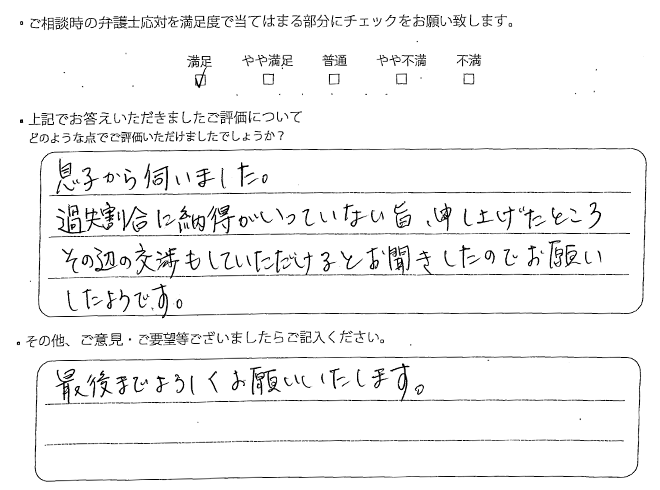 ・ご相談時の弁護士応対を満足度で当てはまる部分にチェックをお願い致します。
満足 やや満足 普通 やや不満 不満
・上記でお答えいただきましたご評価について
どのような点でご評価いただけましたでしょうか？
息子から伺いました。
過失割合に納得がいっていない旨、申し上げたところ
その辺の交渉もしていただけるとお聞きしたのでお願い
したようです。
・その他、ご意見・ご要望等ございましたらご記入ください。
最後までよろしくお願いいたします。